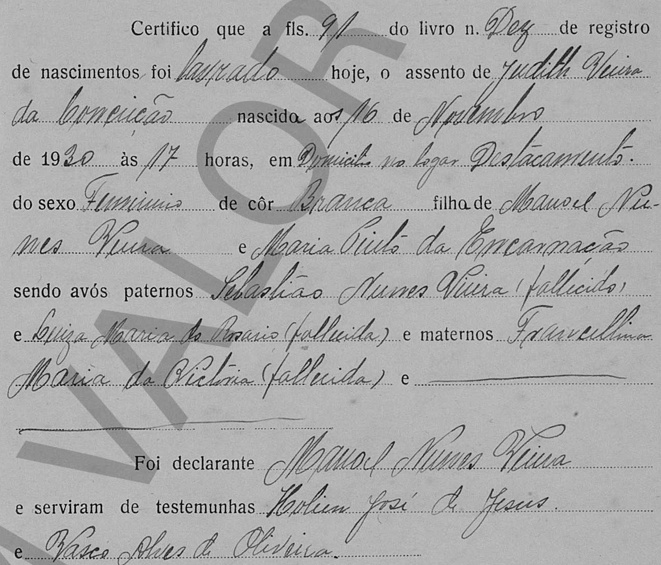 Certifico que a fls. 91 do livro n. Dez de registro
de nascimentos foi lavrado hoje, o assento de Judith Vieira
da Conceição nascida aos 16 de Novembro
de 1930 às 17 horas, em Domicilio no logar Destacamento.
do sexo Feminino de côr Branca filha de Manoel Nu-
nes Vieira e Maria Pinto da Encarnação
sendo avós paternos Sebastião Nunes Vieira (fallecido)
e Luiza Maria do Rosario (fallecida) e maternos Francellina
Maria da Victoria (fallecida) e
Foi declarante Manoel Nunes Vieira
e serviram de testemunhas José de Jesus.
e Vasco Alves de Oliveira.
VALOR